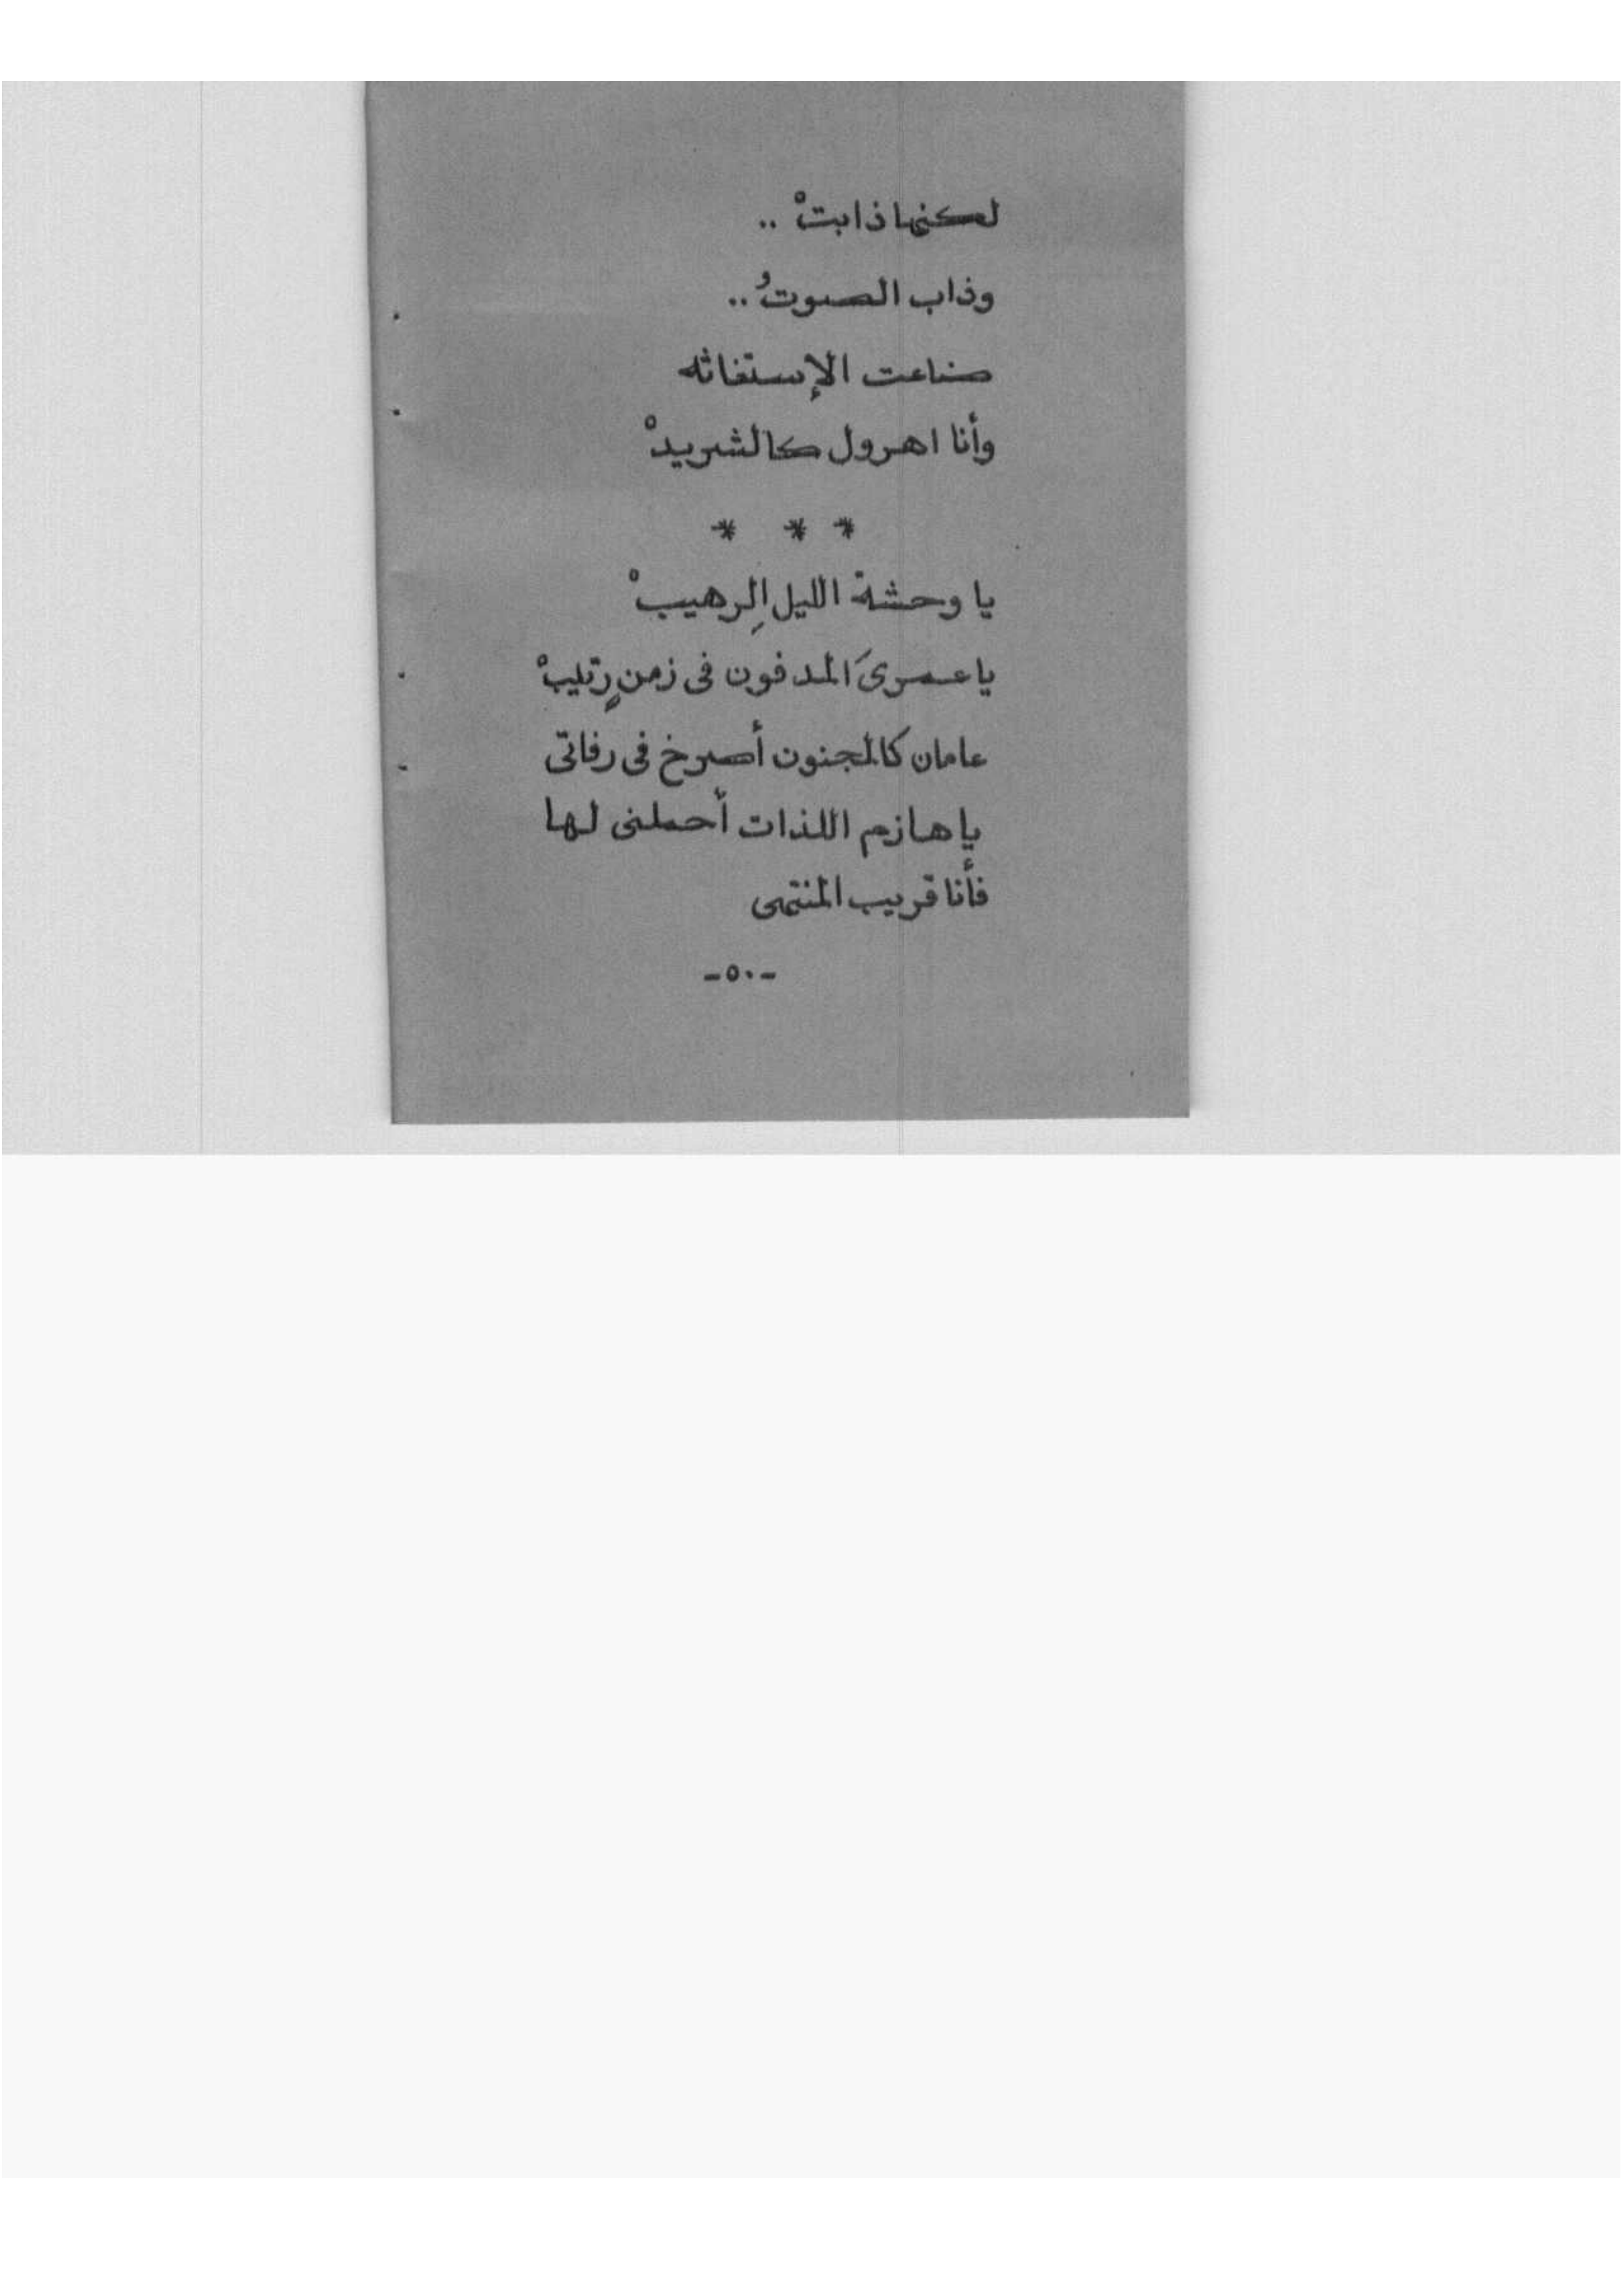 لكنها ذابتْ ..
وذاب الصوتُ ..
ضاعت الإستغاثه
وأنا اهرول كالشريدْ
* * *
يا وحشة الليلِ الرهيبْ
يا عمرىَ المدفون فى زمنٍ رتيبْ
عامان كالمجنون أصرخ فى رفاتى
يا هازم اللذات أحملنى لها
فأنا قريب المنتهى
-٥٠-